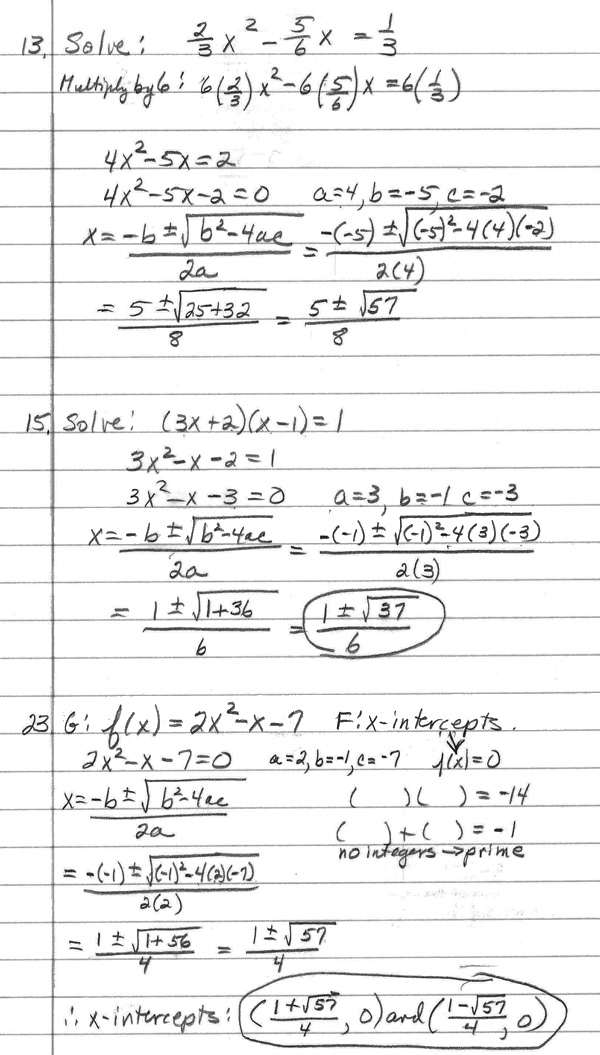 13. Solve: 2/3 x² - 5/6 x = 1/3
Multiply by 6: 6(2/3)x² - 6(5/6)x = 6(1/3)
4x² - 5x = 2
4x² - 5x - 2 = 0 a = 4, b = -5, c = -2
x = (-b ± √(b² - 4ac))/2a = (-(-5) ± √((-5)² - 4(4)(-2)))/2(4)
= (5 ± √(25 + 32))/8 = (5 ± √57)/8
15. Solve: (3x + 2)(x - 1) = 1
3x² - x - 2 = 1
3x² - x - 3 = 0 a = 3, b = -1 c = -3
x = (-b ± √(b² - 4ac))/2a = (-(-1) ± √((-1)² - 4(3)(-3)))/2(3)
= (1 ± √(1 + 36))/6 = (1 ± √37)/6
23 G: f(x) = 2x² - x - 7 F: x-intercepts.
2x² - x - 7 = 0 a = 2, b = -1, c = -7 f(x) = 0
x = (-b ± √(b² - 4ac))/2a ( )( ) = -14
( ) + ( ) = -1
no integers → prime
= (-(-1) ± √((-1)² - 4(2)(-7)))/2(2)
= (1 ± √(1 + 56))/4 = (1 ± √57)/4
∴ x-intercepts: ((1 + √57)/4, 0) and ((1 - √57)/4, 0)